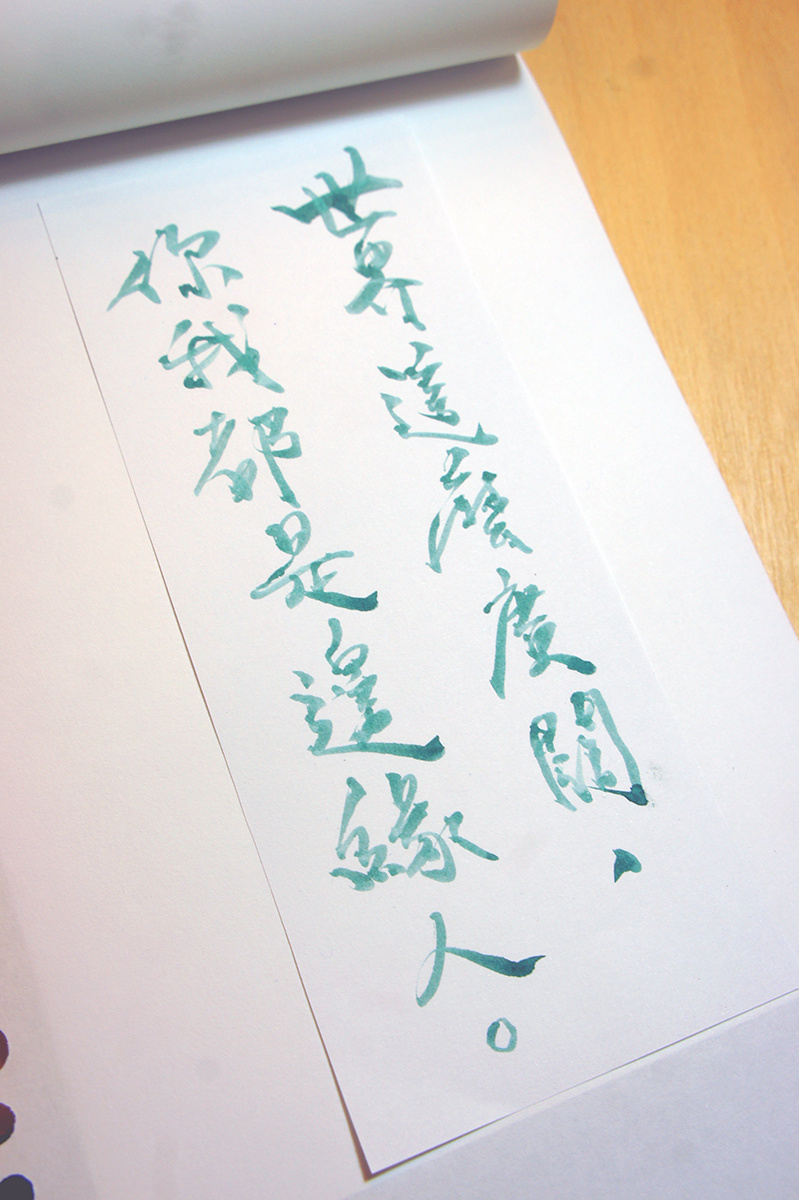 世界這麼廣闊、
你我都是邊緣人。